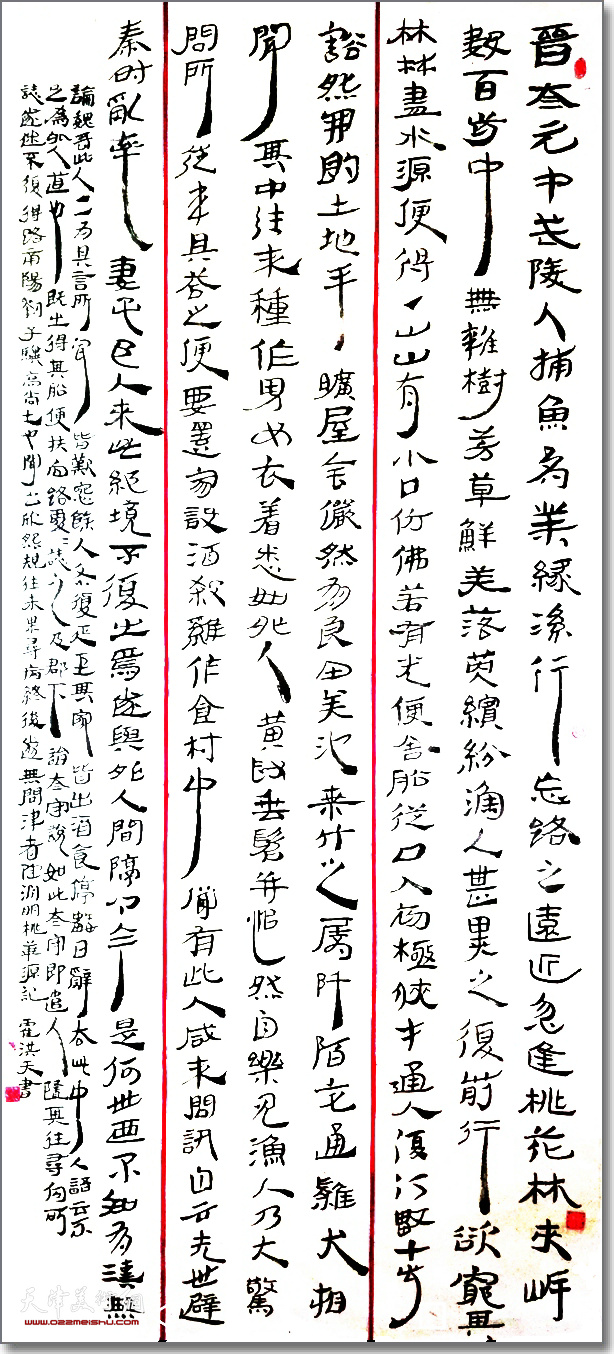 晉太元中武陵人捕魚為業緣溪行忘路之遠近忽逢桃花林夾岸
數百步中無雜樹芳草鮮美落英繽紛漁人甚異之復前行欲窮其
林林盡水源便得一山山有小口仿佛若有光便舍船從口入初極狹才通人復行數十步
豁然開朗土地平々曠屋舍儼然有良田美池桑竹之屬阡陌交通雞犬相
聞其中往來種作男女衣着悉如外人黃髮垂髫并怡然自樂見漁人乃大驚
問所從來具答之便要還家設酒殺雞作食村中聞有此人咸來問訊自云先世避
秦時亂率妻子邑人來此絕境不復出焉遂與外人間隔問今是何世乃不知有漢無
論魏晉此人一一為具言所聞皆歎惋餘人各復延至其家皆出酒食停數日辭去此中人語云不
足為外人道也既出得其船便扶向路處處誌之及郡下詣太守說如此太守即遣人隨其往尋向所
誌遂迷不復得路南陽劉子驥高尚士也聞之欣然規往未果尋病終後遂無問津者陶淵明桃花源記 霍洪天書
天津美術網
www.022meishu.com